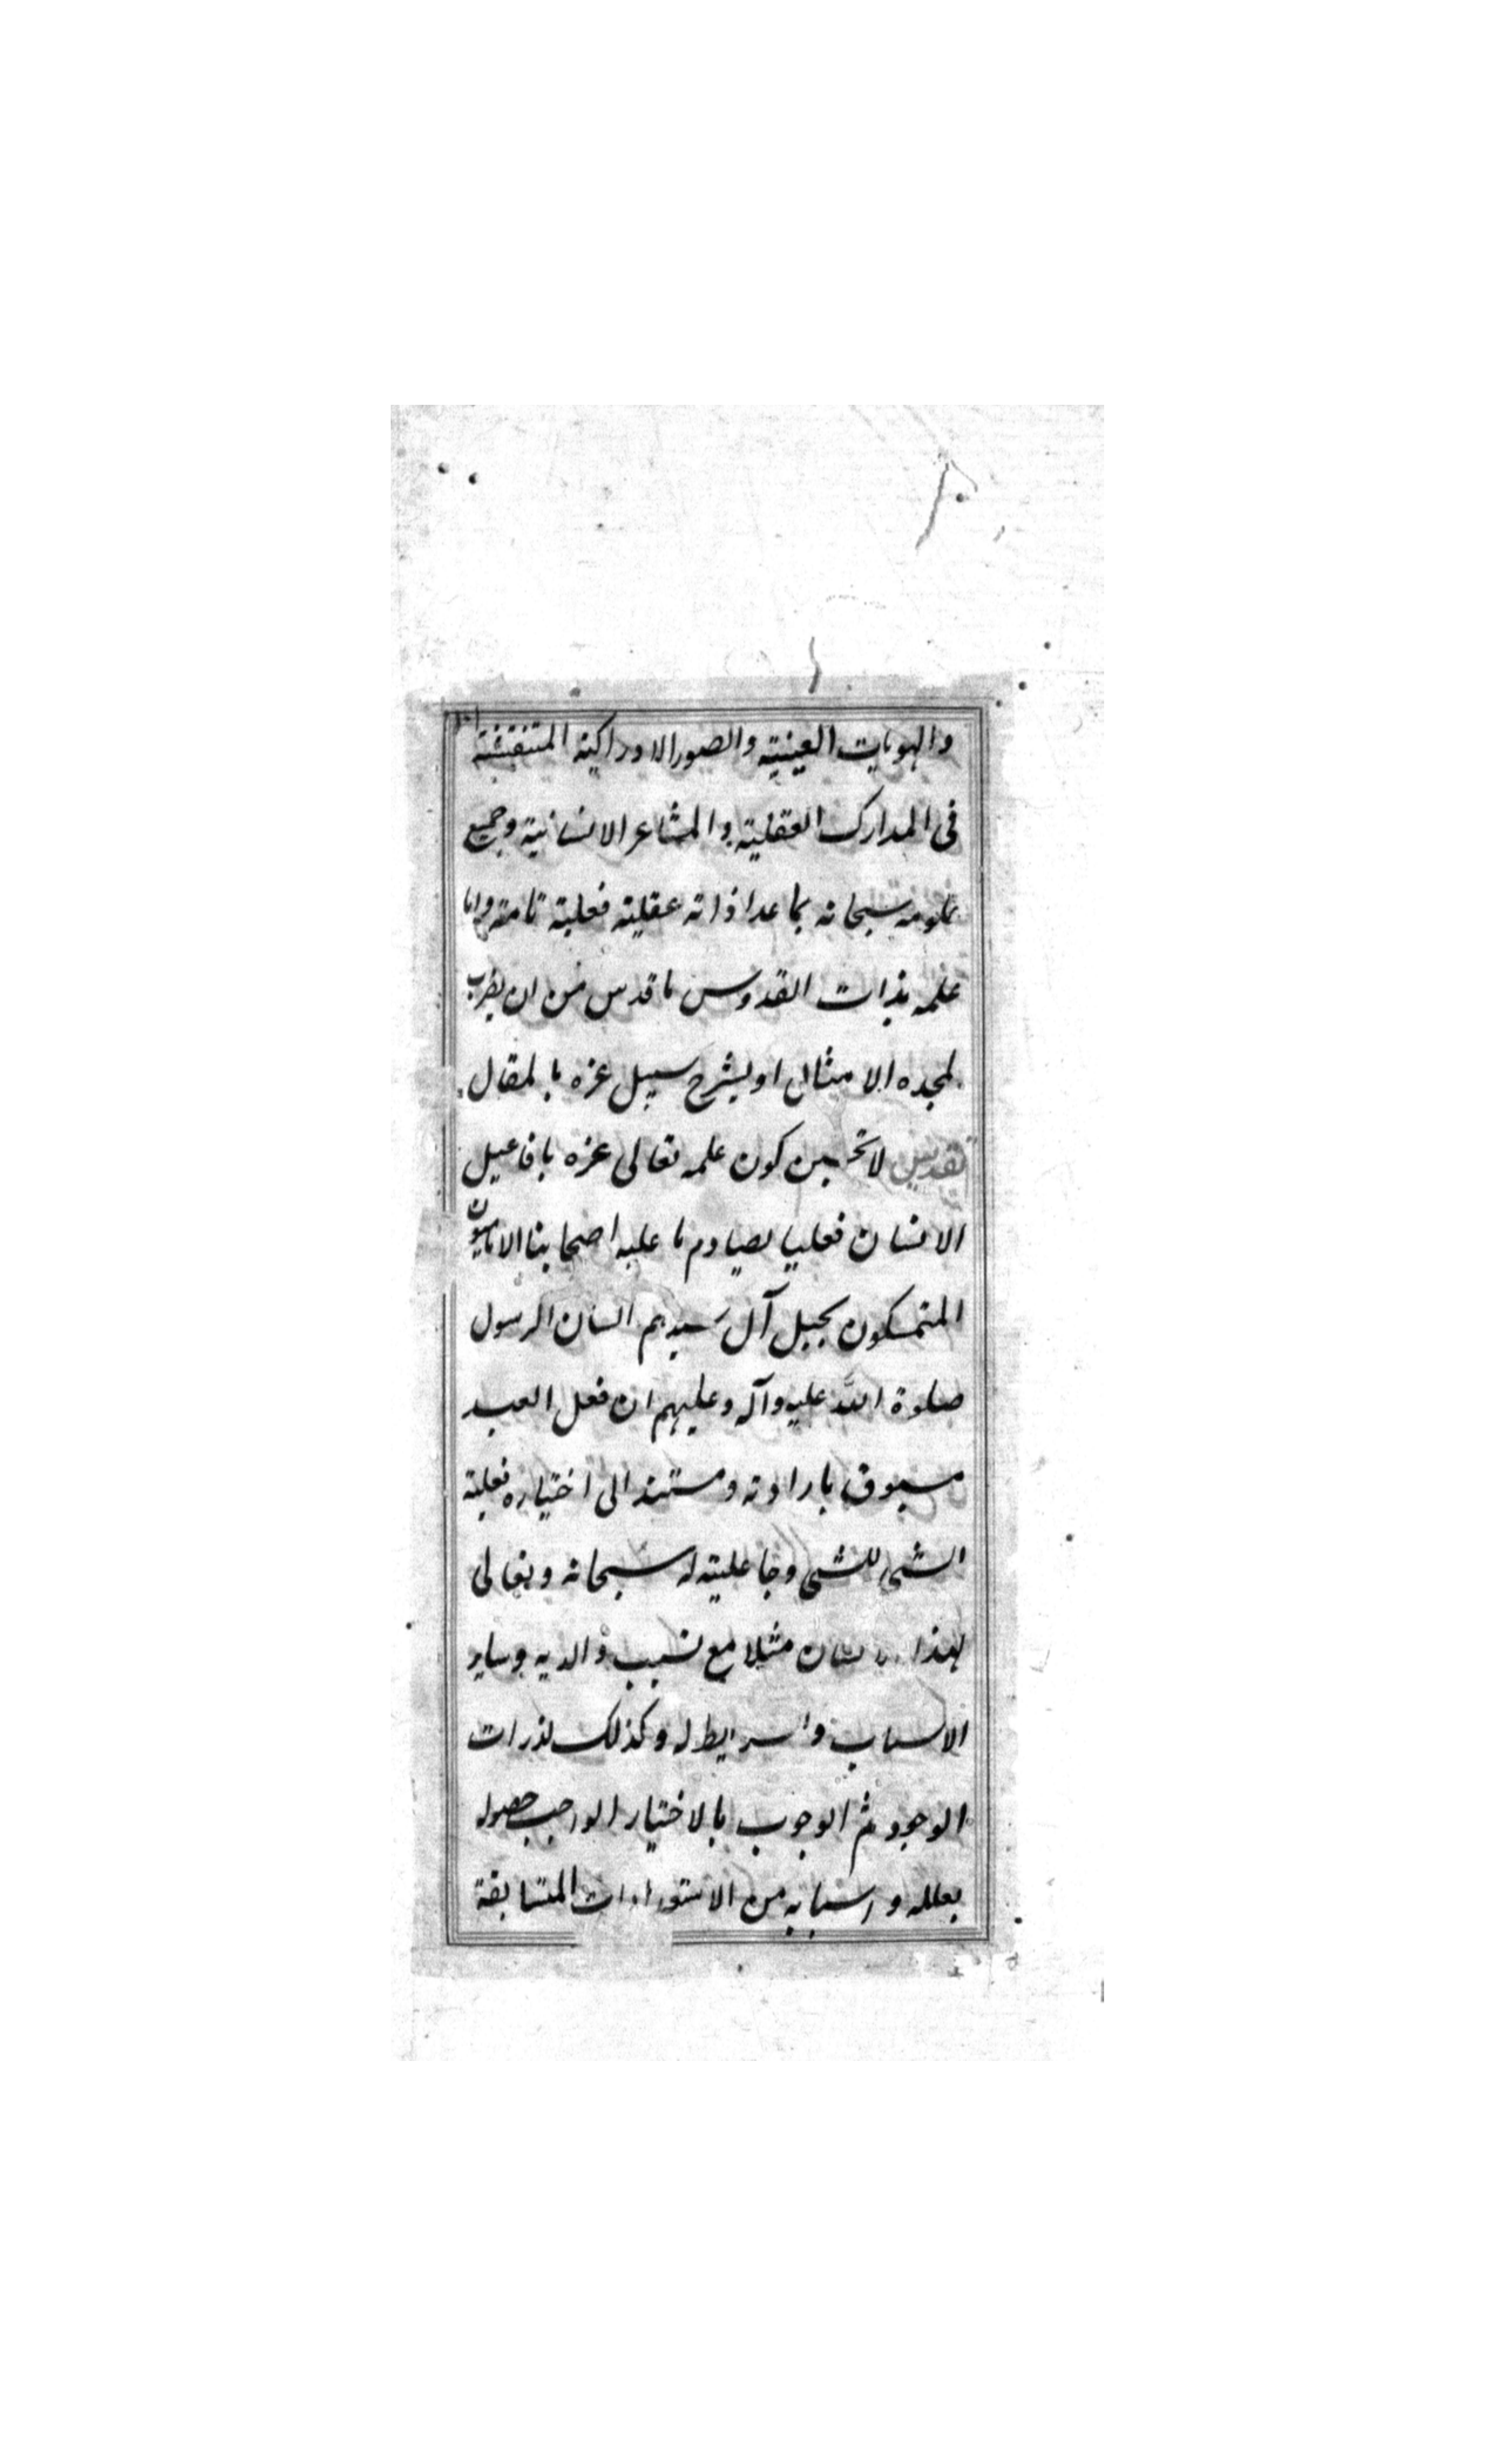 والهويات العينية والصور الادراكية المنتقشة
فى المدارك العقلية والمشاعر الانسانية وجميع
علومه سبحانه بما عدا ذاته عقلية فعلية تامة واما
علمه بذات القدوس فاقدس من ان يضرب
لمجده الامثال او يشرح سبيل عزه بالمقال
تقديس لا تحسبن كون علمه تعالى عزه بافاعيل
الانسان فعليا يصادم ما عليه اصحابنا الاماميون
المتمسكون بحبل آل سيدهم السان الرسول
صلوة الله عليه وآله وعليهم ان فعل العبد
مسبوق بارادته ومستند الى اختياره فعلية
الشى للشى وجاعليته له سبحانه وتعالى
لهذا الانسان مثلا مع تسبب والديه وساير
الاسباب والشرايط له وكذلك لذرات
الوجود ثم الوجوب بالاختيار الواجب حصوله
بعلله واسبابه من الاستعدادات المتسابقة